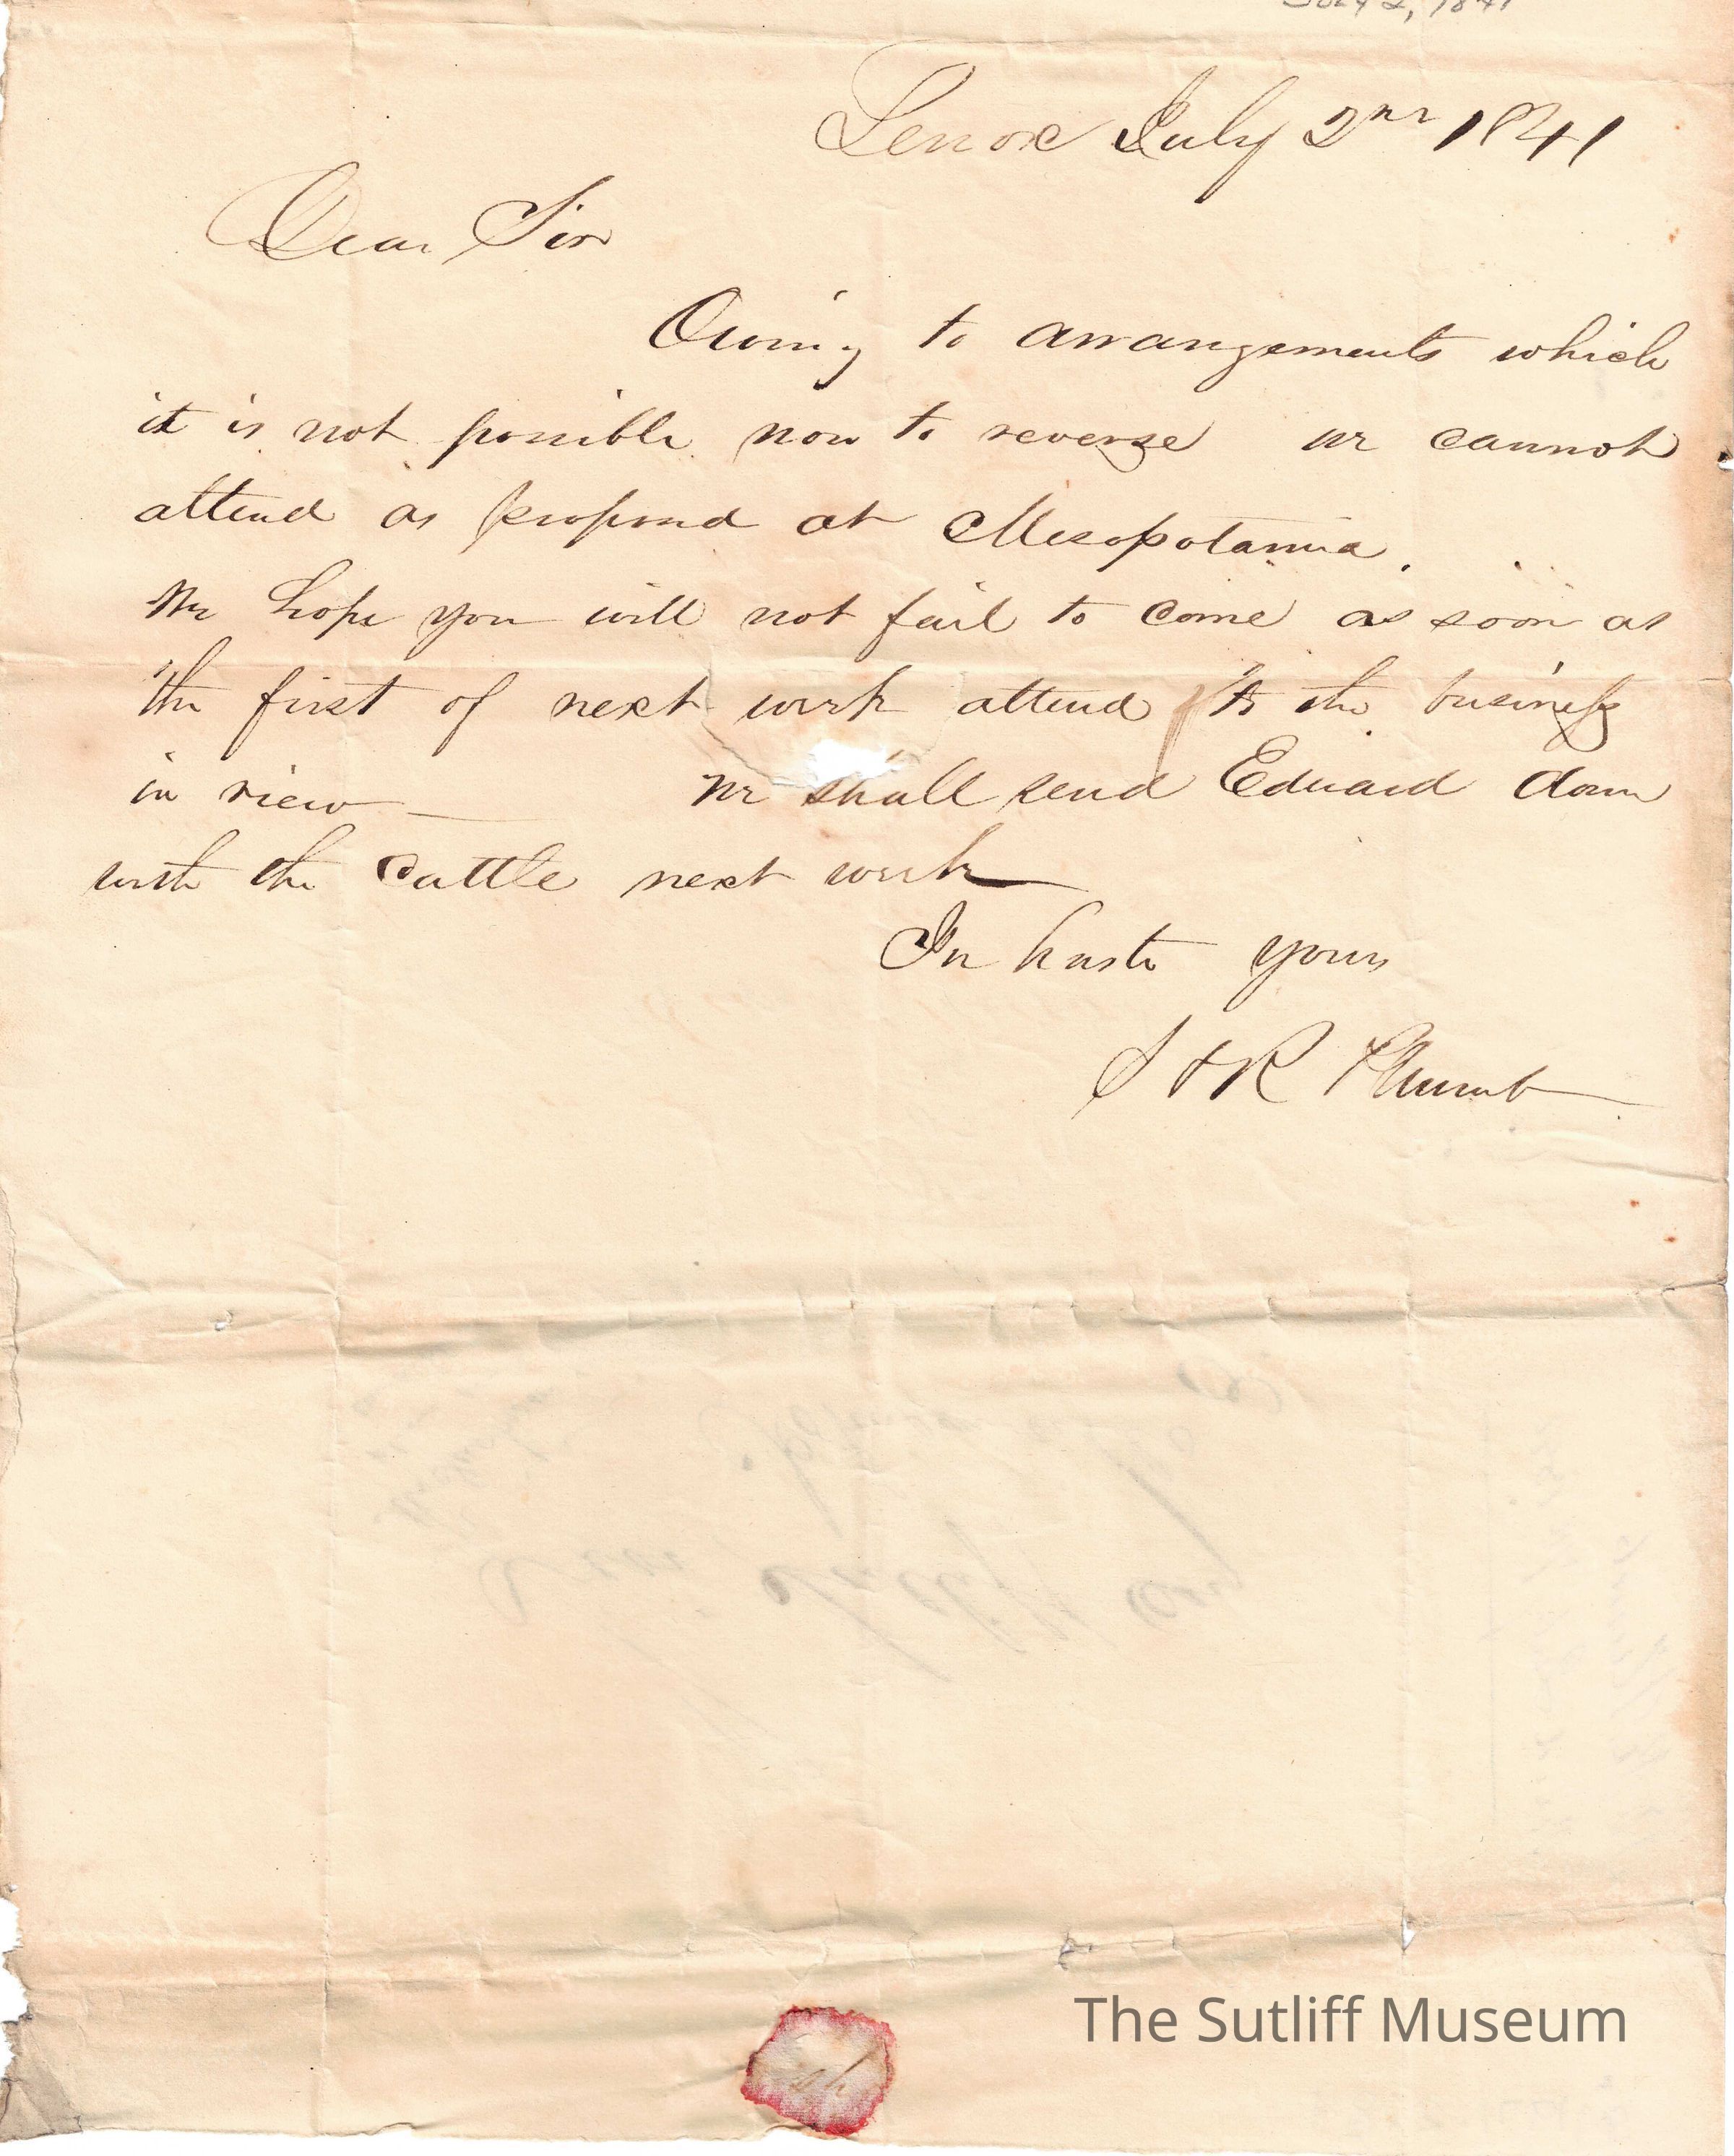 July 2, 1841
Lenox July 2nd 1841
Dear Sir
Owing to arrangements which
it is not possible now to reverse we cannot
attend as proposed at Mesopotamia.
We hope you will not fail to come as soon as
the first of next week attend to the business
in view — We shall send Edward down
with the cattle next week
In haste yours
S & R Plumb
The Sutliff Museum